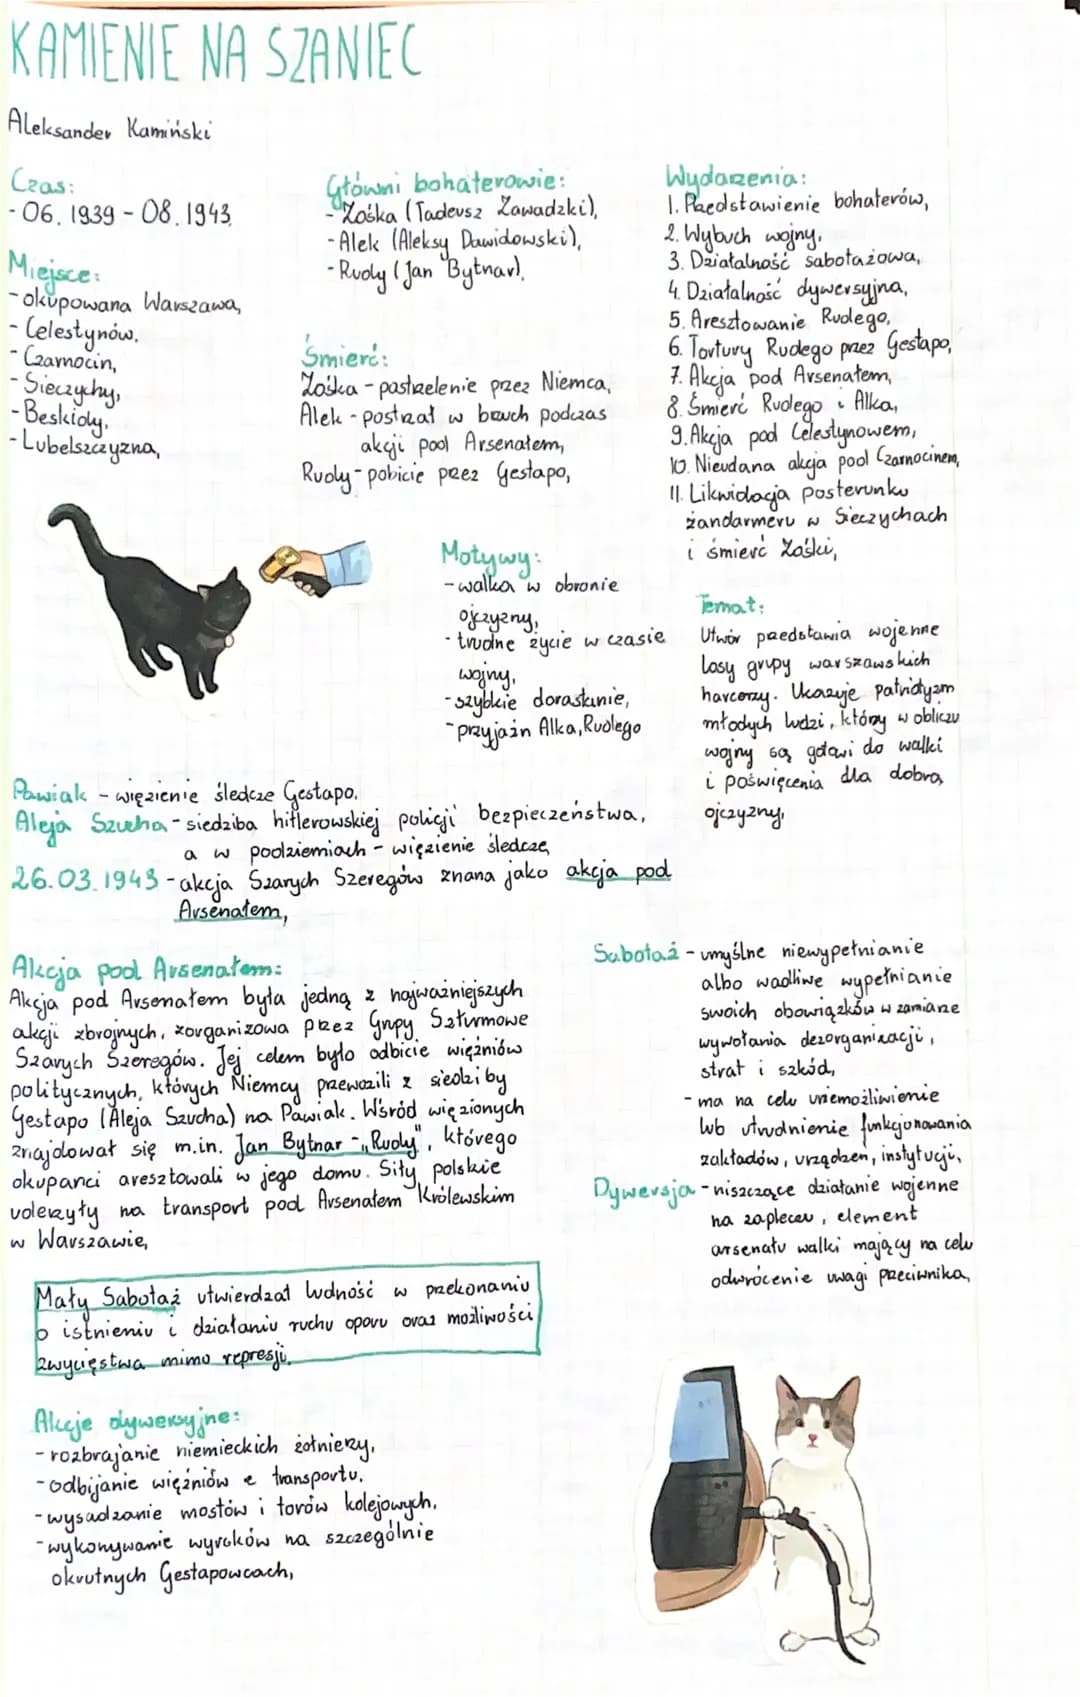 KAMIENIE NA SZANIEC
Aleksander Kamiński
Czas:
- 06. 1939 - 08. 1943,
Miejsce:
- okupowana Warszawa,
- Celestynów,
- Czarnocin,
- Sieczychy,
- Beskidy,
- Lubelszczyzna,
Główni bohaterowie:
- Zośka (Tadeusz Zawadzki),
- Alek (Aleksy Dawidowski),
- Rudy (Jan Bytnar),
Śmierć:
Zośka - pastrzelenie przez Niemca,
Alek - postrzał w brzuch podczas
akcji pod Arsenałem,
Rudy - pobicie przez Gestapo,
Wydarzenia:
1. Przedstawienie bohaterów,
2. Wybuch wojny,
3. Działalność sabotażowa,
4. Działalność dywersyjna,
5. Aresztowanie Rudego,
6. Tortury Rudego przez Gestapo,
7. Akcja pod Arsenałem,
8. Śmierć Rudego i Alka,
9. Akcja pod Celestynowem,
10. Nieudana akcja pod Czarnocinem,
11. Likwidacja posterunku
żandarmeru w Sieczychach
i śmierć Zośki,
Motywy:
- walka w obronie
ojczyzny,
- trudne życie w czasie
wojny,
- szybkie dorastanie,
- przyjaźń Alka, Rudego
Temat:
Utwór przedstawia wojenne
losy grupy warszawskich
harcerzy. Ukazuje patriotyzm
młodych ludzi, którzy w obliczu
wojny są gotowi do walki
i poświęcenia dla dobra,
ojczyzny,
Pawiak - więzienie śledcze Gestapo,
Aleja Szucha - siedziba hitlerowskiej policji bezpieczeństwa,
a w podziemiach - więzienie śledcze,
26.03.1943 - akcja Szarych Szeregów znana jako akcja pod
Arsenałem,
Akcja pod Arsenałem:
Akcja pod Arsenałem była jedną z najważniejszych
akcji zbrojnych, zorganizowa przez Grupy Szturmowe
Szarych Szeregów. Jej celem było odbicie więźniów
politycznych, których Niemcy przewozili z siedziby
Gestapo (Aleja Szucha) na Pawiak. Wśród więzionych
znajdował się m.in. Jan Bytnar - „Rudy", którego
okupanci aresztowali w jego domu. Siły polskie
uderzyły na transport pod Arsenałem Królewskim
w Warszawie,
Sabotaż - umyślne niewypełnianie
albo wadliwe wypełnianie
swoich obowiązków w zamiarze
wywołania dezorganizacji,
strat i szkód,
- ma na celu uniemożliwienie
lub utrudnienie funkcjonowania
zakładów, urządzeń, instytucji,
Dywersja - niszczące działanie wojenne
na zapleczu, element
arsenału walki mający na celu
odwrócenie uwagi przeciwnika,
Mały Sabotaż utwierdzał ludność w przekonaniu
o istnieniu i działaniu ruchu oporu oraz możliwości
zwycięstwa mimo represji.
Akcje dywersyjne:
- rozbrajanie niemieckich żołnierzy,
- odbijanie więźniów z transportu,
- wysadzanie mostów i torów kolejowych,
- wykonywanie wyroków na szczególnie
okrutnych Gestapowcach,